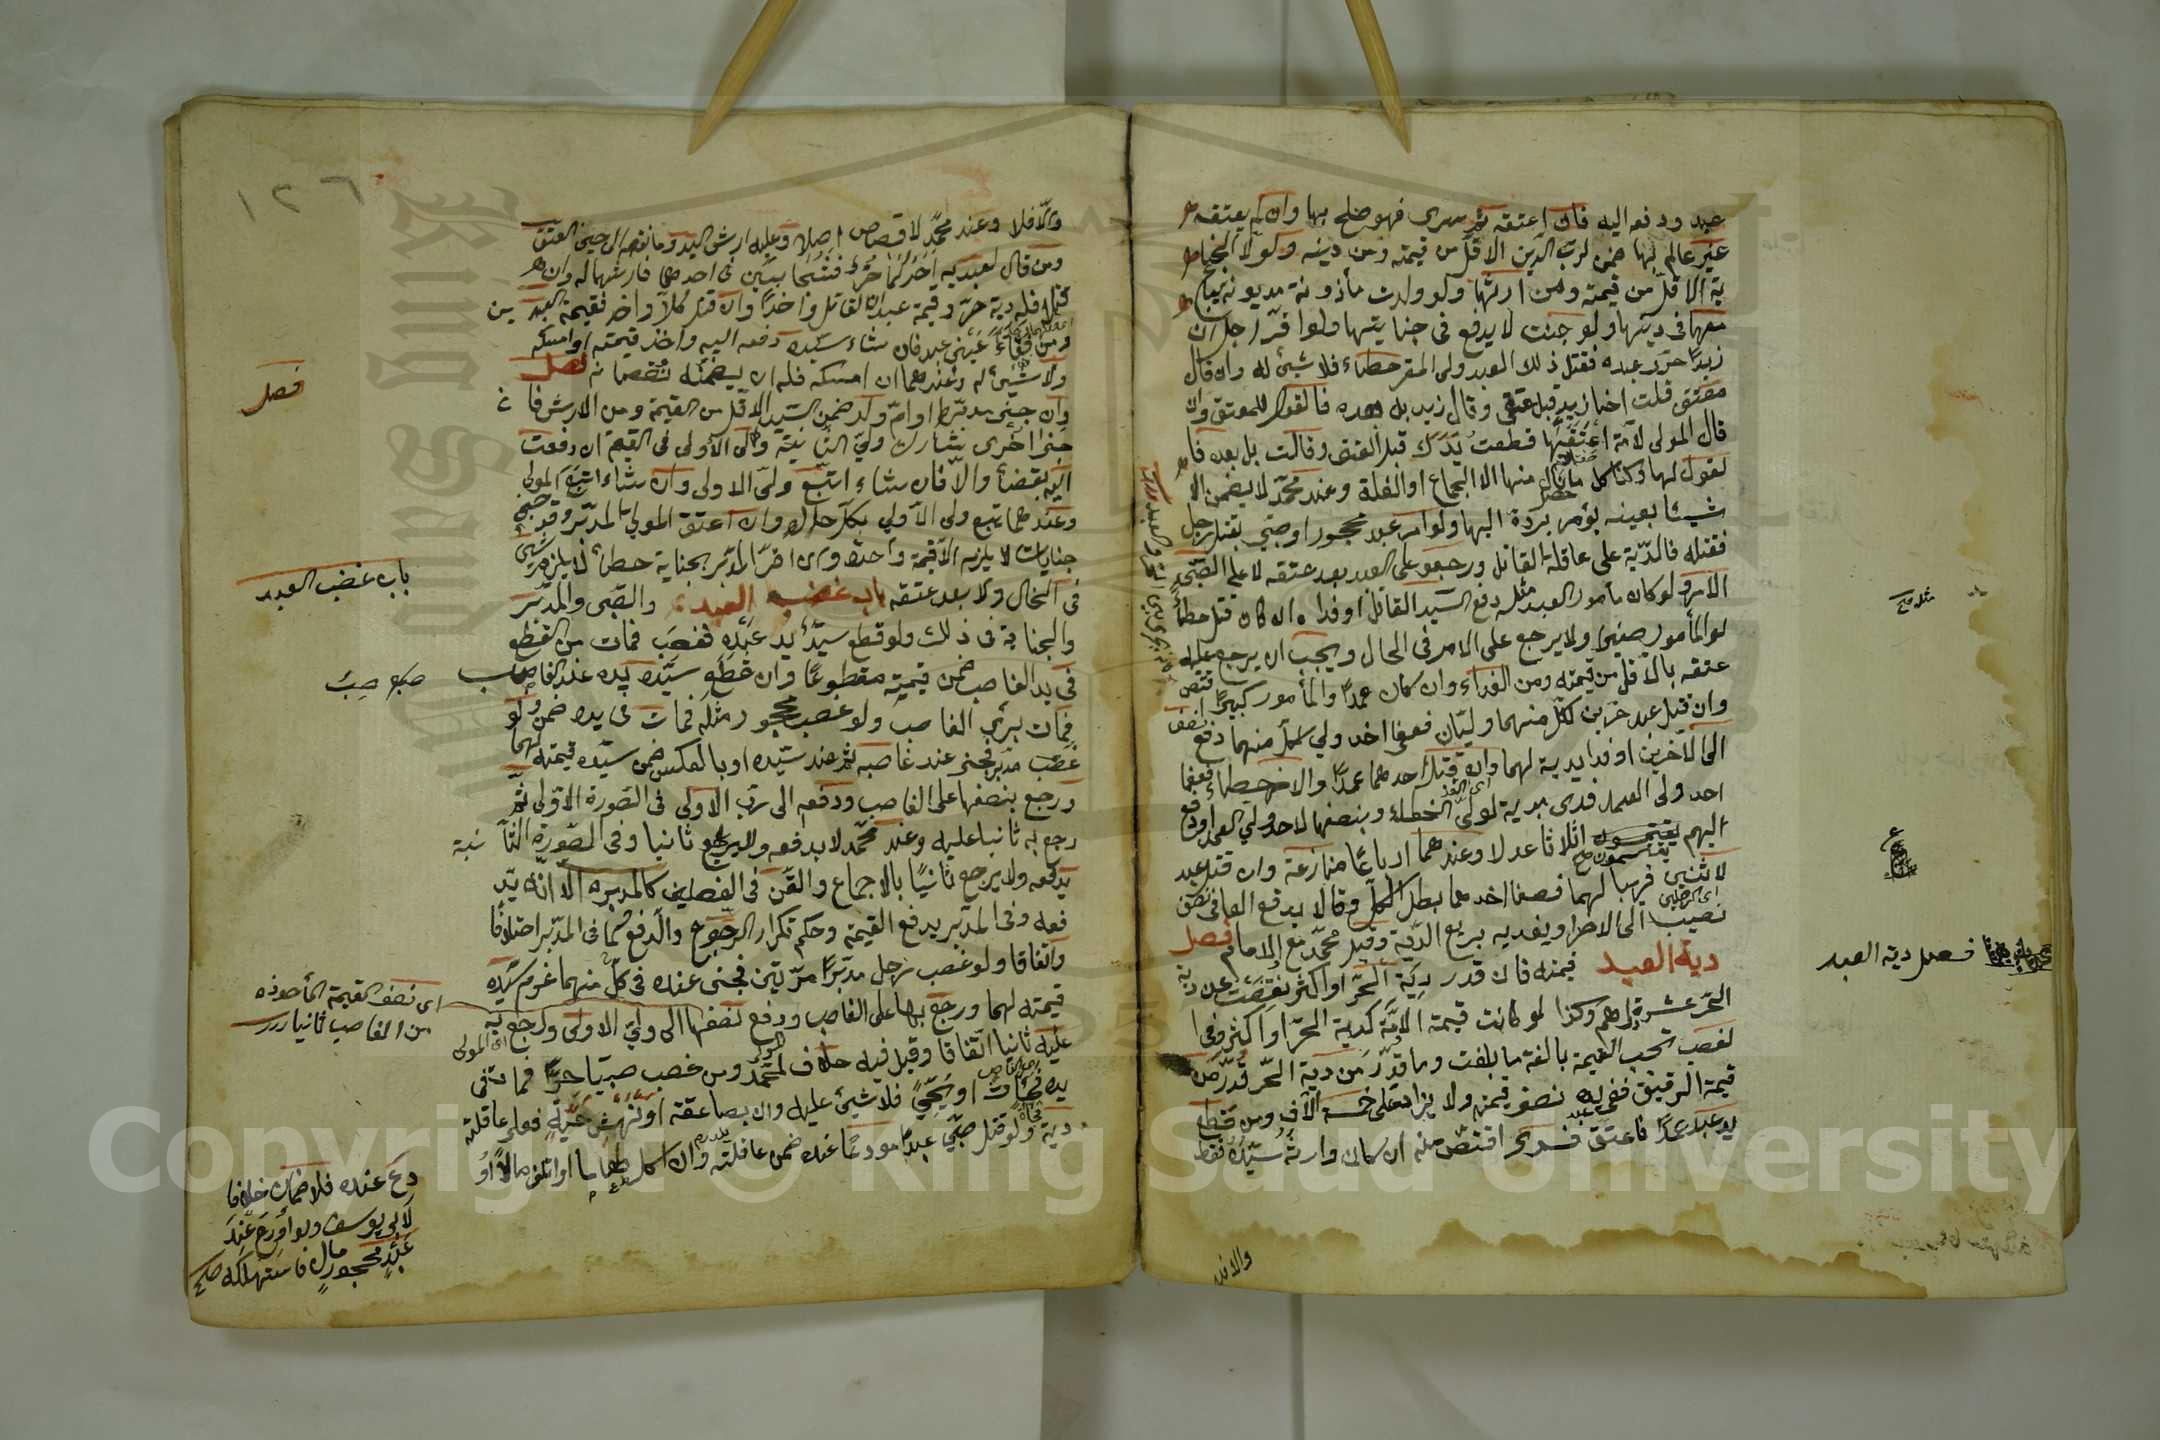 عبد ودفعه اليه فان اعتقه ثم سرى فهو صلح بها وان لم يعتقه
غير عالم بها ضمن لرب الدين الاقل من قيمته ومن دينه ولولي الجنا
ية الاقل من قيمته ومن ارشها ولو ولدت مأذونة مديونة يباع
معها في دينها ولو جنت لا يدفع في جنايتها ولو اقر رجل ان
زيدا حرر عبده فقتل ذلك العبد ولي المقر خطاء فلا شئ له وان قال
معتق قتلت اخا زيد قبل عتقي وقال زيد بل بعده فالقول للمعتق وان
قال المولى لامة اعتقها قطعت يدك قبل العتق وقالت بل بعده فا
لقول لها وكذا كل ما نال منها الا الجماع او الغلة وعند محمد لا يضمن الا
شيئا بعينه يؤمر برده اليها ولو امر عبد محجور او صبي بقتل رجل
فقتله فالدية على عاقلة القاتل ورجعوا على العبد بعد عتقه لا على الصبي
الآمر ولو كان مأمور العبد مثله دفع السيد القاتل او فداه ان كان قتل خطأ
او المأمور صغيرا ولا يرجع على الامر في الحال ويجب ان يرجع عليه
عتقه بالاقل من قيمته ومن الفداء وان كان عمدا والمأمور كبيرا اقتص
وان قتل عبد حرين لكل منهما وليان فعفا احد ولي كل منهما دفع نصفه
الى الآخرين او فدا بدية لهما وان قتل احدهما عمدا والاخر خطاء فعفا
احد ولي العمد فدى بدية لولي الخطاء وبنصفها لاحد ولي العمد او دفع
اليهم يقتسمونه اثلاثا عولا وعندهما ارباعا منازعة وان قتل عبد
لاثنين قريبا لهما فعفا احدهما بطل الكل وقالا يدفع العافي نصف
نصيبه الى الاخر او يفديه بربع الدية وقيل محمد مع الامام فصل
دية العبد قيمته فان كان قدر دية الحر او اكثر نقصت عن دية
الحر عشرة دراهم وكذا لو كانت قيمة الامة كدية الحرة او اكثر وفي ا
لغصب تجب القيمة بالغة ما بلغت وما قدر من دية الحر قدر من
قيمة الرقيق ففي يده نصف قيمته ولا يزاد على خمسة الاف ومن قطع
يد عبد عمدا فاعتق فسرى اقتص منه ان كان وارثه سيده فقط
فصل دية العبد
والا فلا
والا فلا وعند محمد لا قصاص اصلا وعليه ارش اليد وما نقصه الى حين العتق
ومن قال لعبديه احدكما حر فشجا فبين في احدهما فارشهما له وان
قتلا فله دية حر وقيمة عبد ان القاتل واحدا وان قتل كلا واحد فقيمة العبدين
ومن فقأ عيني عبد فان شاء سيده دفعه اليه واخذ قيمته او امسكه
ولا شئ له وعندهما ان امسكه فله ان يضمنه نقصانه فصل
وان جنى مدبر او ام ولد ضمن السيد الاقل من القيمة ومن الارش فان
جنى اخرى شارك ولي الثانية ولي الاولى في القيمة ان دفعت
اليه بقضاء والا فان شاء اتبع ولي الاولى وان شاء اتبع المولى
وعندهما يتبع ولي الاولى بكل حال وان اعتق المولى المدبر وقد جنى
جنايات لا يلزمه الا قيمة واحدة وان اقر المدبر بجناية خطأ لا يلزمه شئ
في الحال ولا بعد عتقه باب غصب العبد والصبي والمدبر
والجناية في ذلك ولو قطع سيد يد عبده فغصب فمات من القطع
في يد الغاصب ضمن قيمته مقطوعا وان قطع سيده يده عند الغاصب
فمات برئ الغاصب ولو غصب محجور مثله فمات في يده ضمن ولو
غصب مدبر فجنى عند غاصبه ثم عند سيده او بالعكس ضمن سيده قيمته لهما
ورجع بنصفها على الغاصب ودفعه الى رب الاولى في الصورة الاولى ثم
رجع به ثانيا عليه وعند محمد لا يدفعه ولا يرجع ثانيا وفي الصورة الثانية
يدفعه ولا يرجع ثانيا بالاجماع والقن في الفصلين كالمدبر الا انه يد
فعه وفي المدبر يدفع القيمة وحكم تكرار الرجوع والدفع كما في المدبر اختلافا
واتفاقا ولو غصب رجل مدبرا مرتين فجنى عنده في كل منهما غرم سيده
قيمته لهما ورجع بها على الغاصب ودفع نصفها الى ولي الاولى ورجع به
عليه ثانيا اتفاقا وقيل فيه خلاف لمحمد ومن غصب صبيا حرا فمات في
يده فجأة او بحمى فلا شئ عليه وان بصاعقة او نهش حية فعلى عاقلته
دية ولو قتل صبي عبدا مودعا عنده ضمن عاقلته وان اكل طعاما او اتلف مالا او
فصل
باب غصب العبد
اى نصف القيمة المأخوذه
من الغاصب ثانيا درر
دع عنده فلا ضمان خلافا
لابي يوسف ولو اودع عند
عبد محجور مال فاستهلكه صح
١٢٦
Copyright © King Saud University